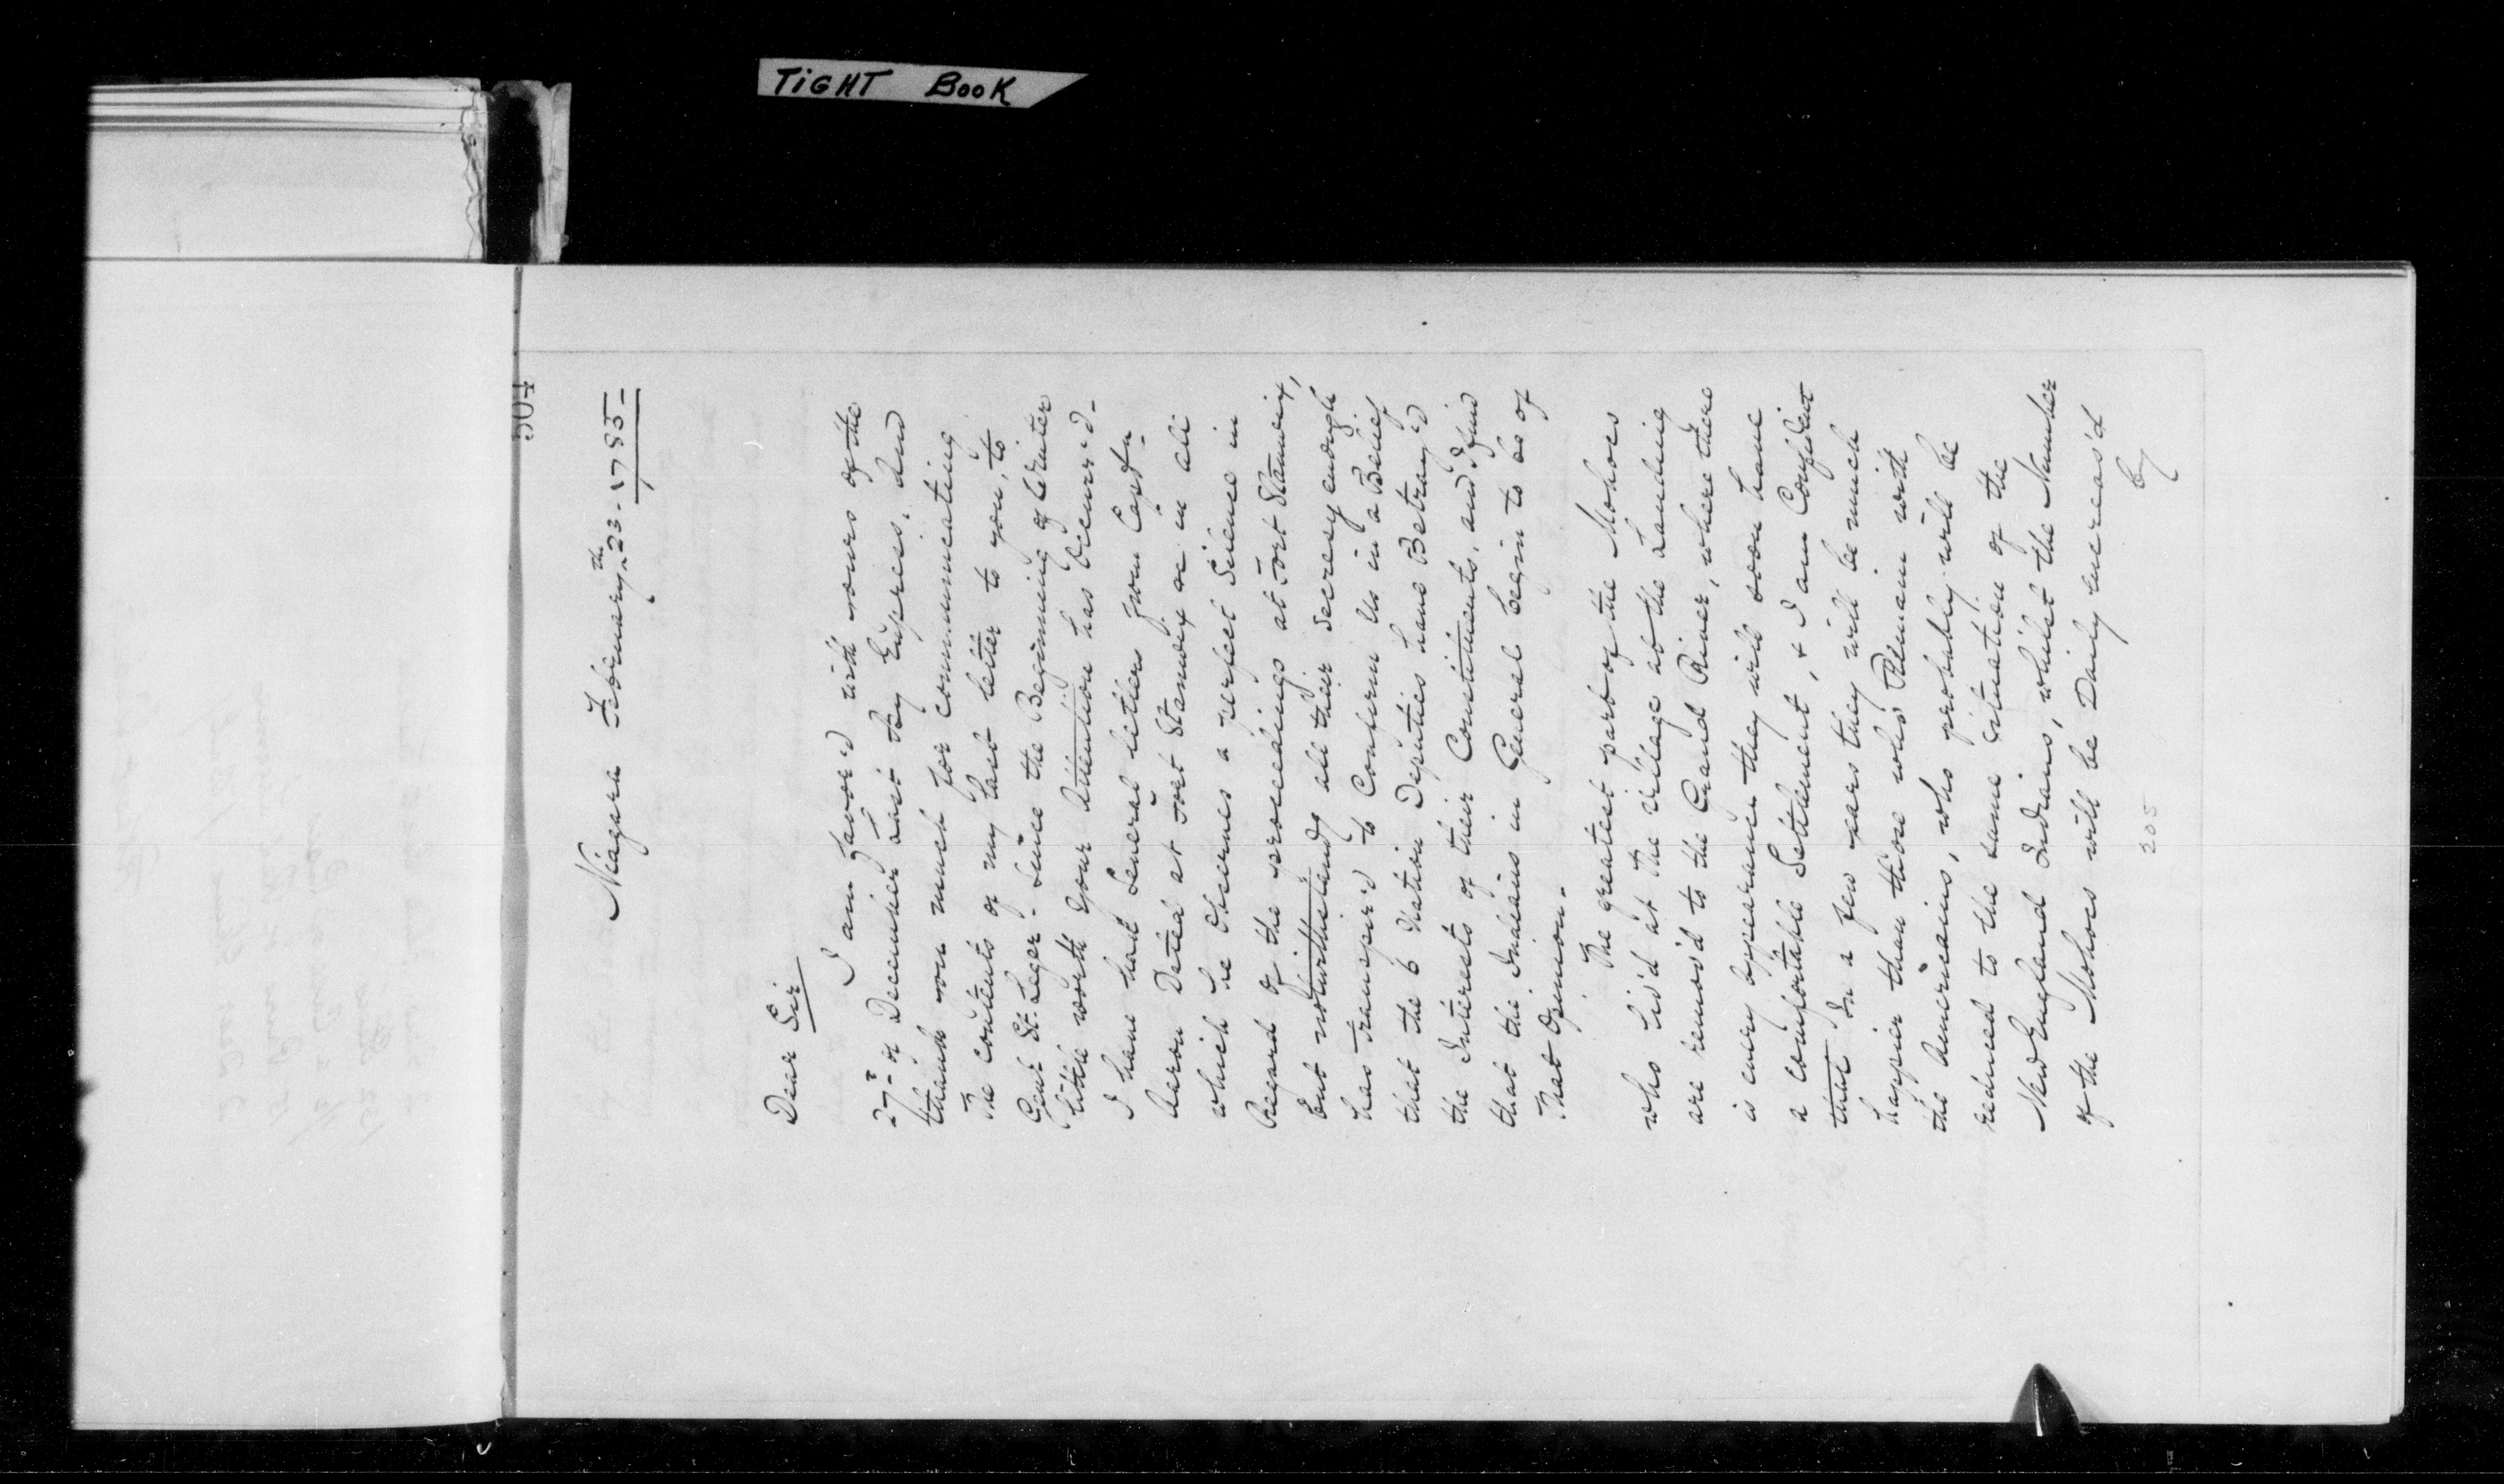 TIGHT BOOK
504
Niagara February 23th 1785-
Dear Sir
I am favor'd with yours of the
27th of December Last Pey Express. And
thank you much for communicating
The contents of my last letter to you, to
Genl St. Leger- Since the Beginning of Winter
little worth your Attention has Occurr'd-
I have had Several letters from Captn-
Aaron Dated at Fort Stanwix or in all
which he Observes a perfect Silence in
Regard of the proceedings at Fort Stanwix,
but notwithstandg all their Secresy enough
has transpir'd to Confirm Us in a Belief
that the 6 Nation Deputies have Betray'd
the Interests of their Constituents, and I find
that the Indians in General begin to be of
That Opinion-
The greatest part of the Mohocs
who liv'd at The village at the Landing
are remov'd to the Grand River, where there
is every appearance they will soon have
a comfortable Settlement, & I am Confident
that In a few years they will be much
happier than those who Remain with
the Americains, who probably will be
reduced to the same situation of the
New England Indians, whilst the Number
of the Mohocs will be Daily increas'd
by
205